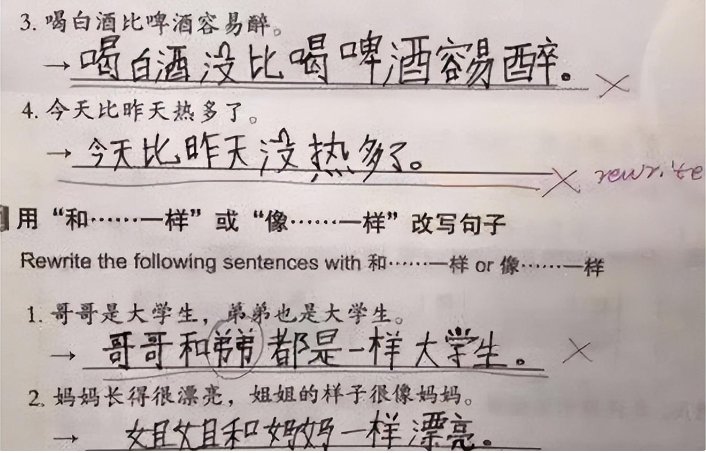 3. 喝白酒比啤酒容易醉。
→喝白酒没比喝啤酒容易醉。 ×
4. 今天比昨天热多了。
→今天比昨天没热多了。 × rewrite
用“和……一样”或“像……一样”改写句子
Rewrite the following sentences with 和……一样 or 像……一样
1. 哥哥是大学生，弟弟也是大学生。
→哥哥和弟弟都是一样大学生。 ×
2. 妈妈长得很漂亮，姐姐的样子很像妈妈。
→姐姐和妈妈一样漂亮。